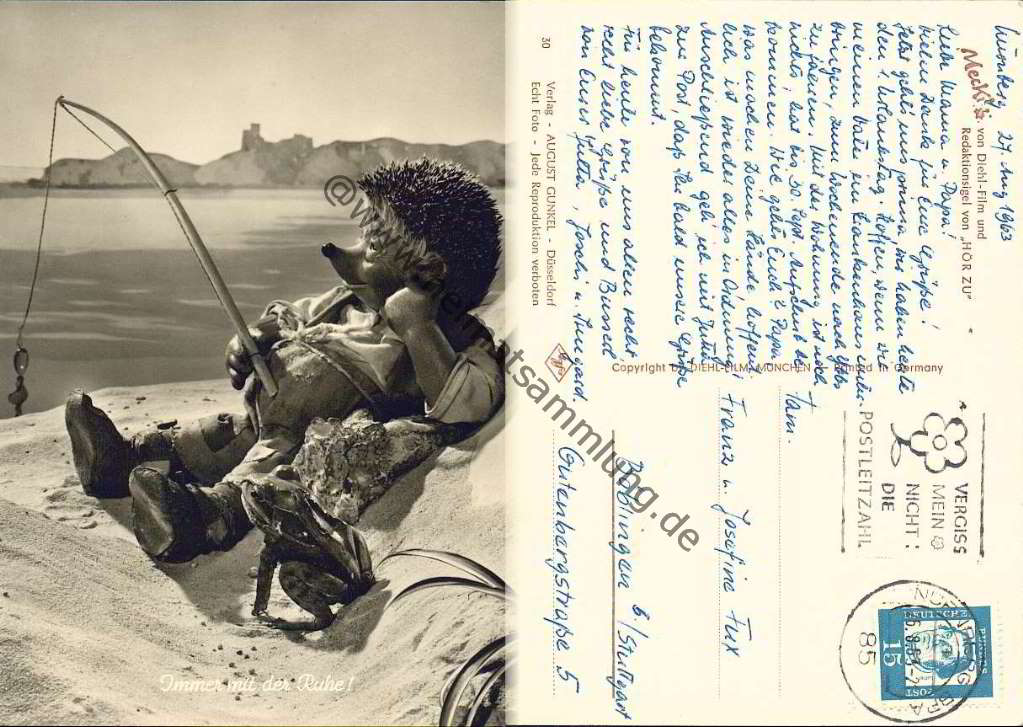 Immer mit der Ruhe!
30 Verlag - AUGUST GUNKEL - Düsseldorf
Echt Foto - Jede Reproduktion verboten
Mecki
von Diehl-Film und
Redaktionsigel von „HÖR ZU"
Copyright by DIEHL-FILM MÜNCHEN
Printed in Germany
Nürnberg, 27. Aug 1963
Liebe Mama u. Papa!
Vielen Dank für Eure Grüße!
geht's uns prima, wir haben heute
den 1. Urlaubstag. Hoffen, wenn wir
meinen Vater im Krankenhaus
bringen, zum Wochenende nach
zu fahren. Mit der Wohnung ist noch
nichts, erst bis 30. Sept.
kommen. Wie geht's Euch? Papa
was machen Deine Hände, hoffent-
lich ist wieder alles in Ordnung!
Anschließend geh' ich mit Jutta
zur Post, daß Ihr bald unsere Grüße
bekommt.
Für heute von uns allen recht
recht liebe Grüße und Busserl
von Eurer Jutta, Joschi u. Irmgard
Fam.
Franz u. Josefine Fux
Böblingen b./Stuttgart
Gutenbergstraße 5
VERGISS
MEIN
NICHT:
DIE
POSTLEITZAHL
NÜRNBERG
85
DEUTSCHE BUNDESPOST
15
Agfa
@www.ansichtskartsammlung.de